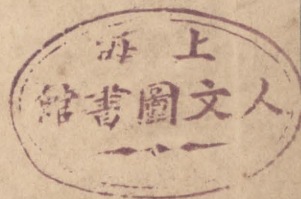 上海
人文圖書館